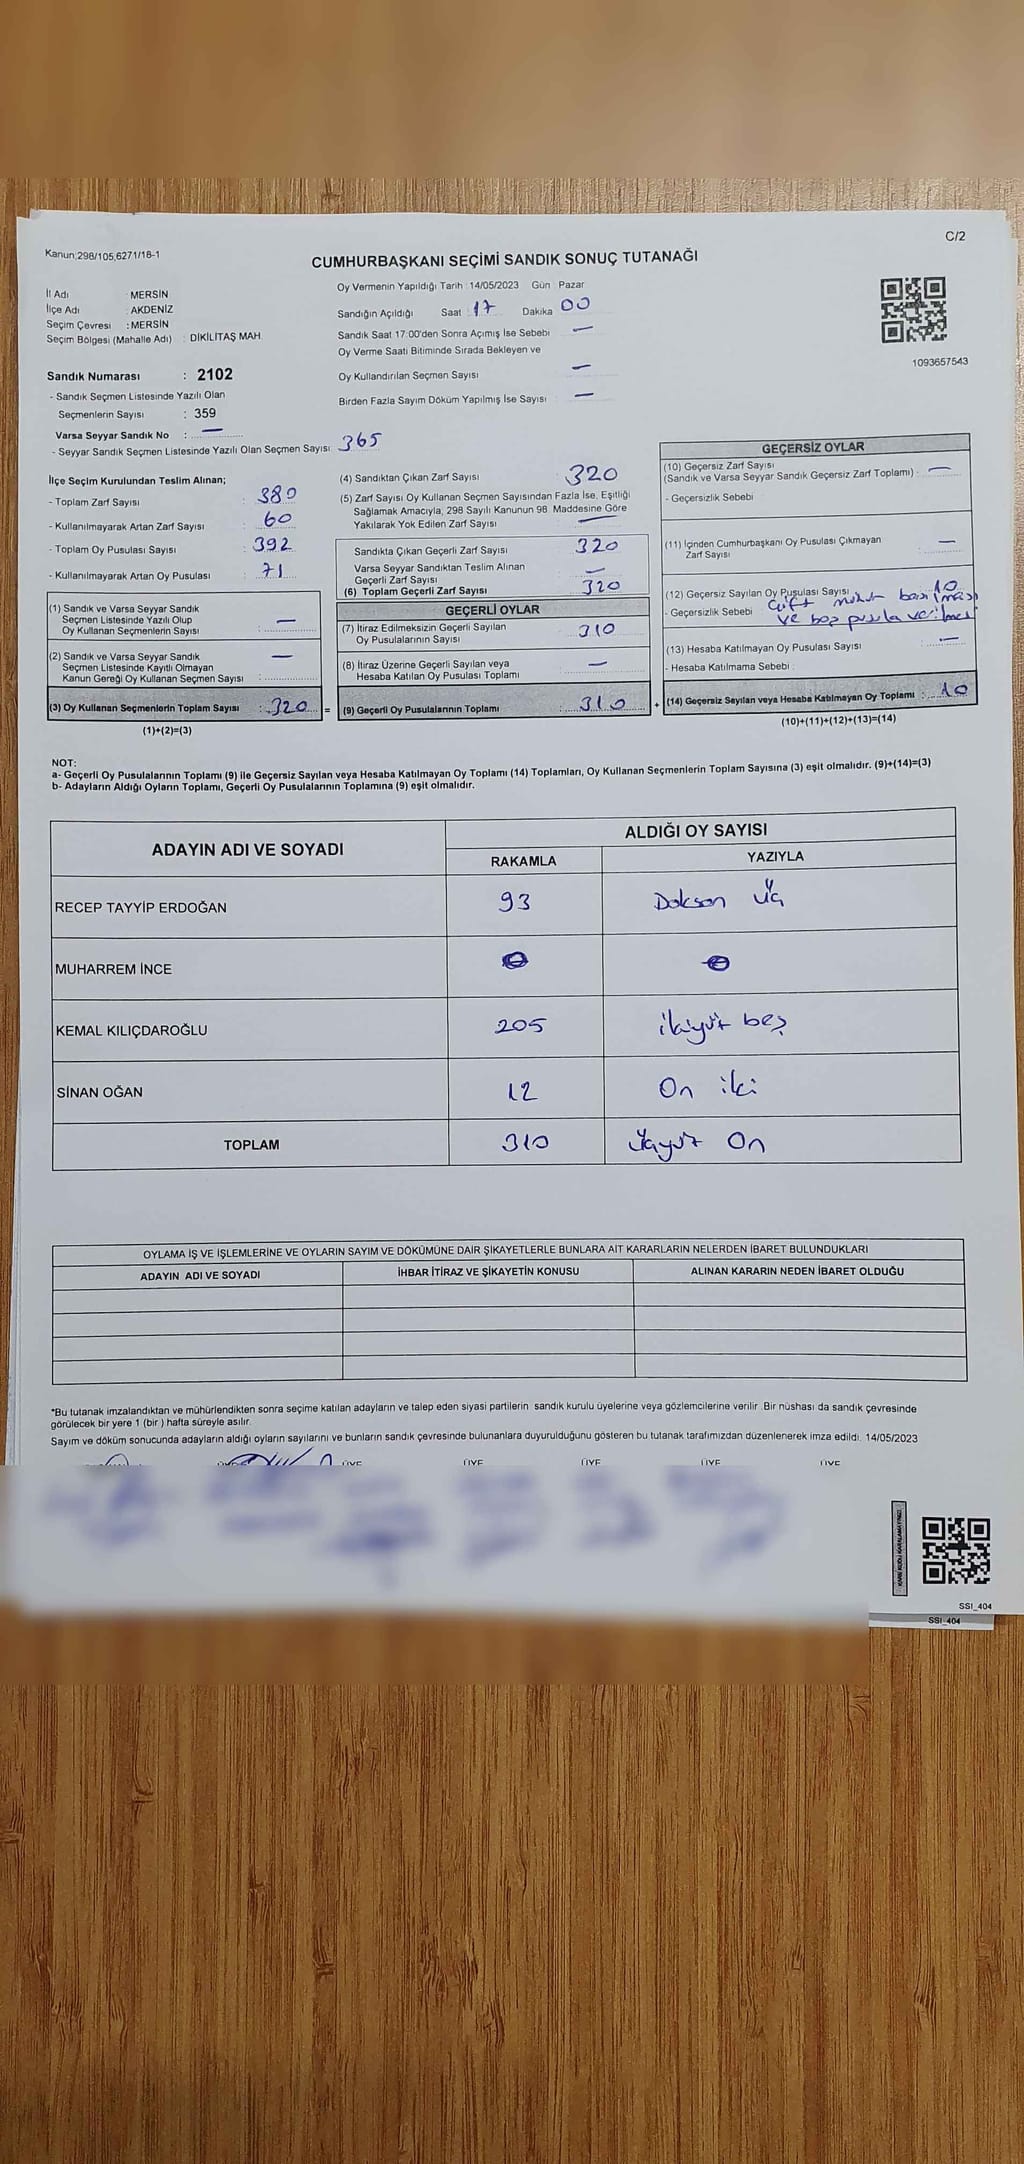 C/2
Kanun;298/105,6271/18-1
CUMHURBAŞKANI SEÇİMİ SANDIK SONUÇ TUTANAĞI
İl Adı : MERSİN
İlçe Adı : AKDENİZ
Seçim Çevresi : MERSİN
Seçim Bölgesi (Mahalle Adı) : DİKİLİTAŞ MAH.
Sandık Numarası : 2102
- Sandık Seçmen Listesinde Yazılı Olan
Seçmenlerin Sayısı : 359
Varsa Seyyar Sandık No : —
- Seyyar Sandık Seçmen Listesinde Yazılı Olan Seçmen Sayısı: 365
Oy Vermenin Yapıldığı Tarih : 14/05/2023 Gün : Pazar
Sandığın Açıldığı Saat : 17 Dakika 00
Sandık Saat 17:00'den Sonra Açımış İse Sebebi : —
Oy Verme Saati Bitiminde Sırada Bekleyen ve
Oy Kullandırılan Seçmen Sayısı : —
Birden Fazla Sayım Döküm Yapılmış İse Sayısı : —
1093657543
İlçe Seçim Kurulundan Teslim Alınan;
- Toplam Zarf Sayısı : 380
- Kullanılmayarak Artan Zarf Sayısı : 60
- Toplam Oy Pusulası Sayısı : 392
- Kullanılmayarak Artan Oy Pusulası : 71
(1) Sandık ve Varsa Seyyar Sandık
Seçmen Listesinde Yazılı Olup
Oy Kullanan Seçmenlerin Sayısı : —
(2) Sandık ve Varsa Seyyar Sandık
Seçmen Listesinde Kayıtlı Olmayan
Kanun Gereği Oy Kullanan Seçmen Sayısı : —
(3) Oy Kullanan Seçmenlerin Toplam Sayısı : 320 =
(1)+(2)=(3)
(4) Sandıktan Çıkan Zarf Sayısı : 320
(5) Zarf Sayısı Oy Kullanan Seçmen Sayısından Fazla İse, Eşitliği
Sağlamak Amacıyla; 298 Sayılı Kanunun 98. Maddesine Göre
Yakılarak Yok Edilen Zarf Sayısı : —
Sandıkta Çıkan Geçerli Zarf Sayısı : 320
Varsa Seyyar Sandıktan Teslim Alınan
Geçerli Zarf Sayısı : —
(6) Toplam Geçerli Zarf Sayısı : 320
GEÇERLİ OYLAR
(7) İtiraz Edilmeksizin Geçerli Sayılan
Oy Pusulalarının Sayısı : 310
(8) İtiraz Üzerine Geçerli Sayılan veya
Hesaba Katılan Oy Pusulası Toplamı : —
(9) Geçerli Oy Pusulalarının Toplamı : 310 +
GEÇERSİZ OYLAR
(10) Geçersiz Zarf Sayısı
(Sandık ve Varsa Seyyar Sandık Geçersiz Zarf Toplamı) : —
- Geçersizlik Sebebi :
(11) İçinden Cumhurbaşkanı Oy Pusulası Çıkmayan
Zarf Sayısı : —
(12) Geçersiz Sayılan Oy Pusulası Sayısı : 10
- Geçersizlik Sebebi : Çift mühür basılması
ve boş pusula verilmesi
(13) Hesaba Katılmayan Oy Pusulası Sayısı : —
- Hesaba Katılmama Sebebi :
(14) Geçersiz Sayılan veya Hesaba Katılmayan Oy Toplamı : 10
(10)+(11)+(12)+(13)=(14)
NOT:
a- Geçerli Oy Pusulalarının Toplamı (9) ile Geçersiz Sayılan veya Hesaba Katılmayan Oy Toplamı (14) Toplamları, Oy Kullanan Seçmenlerin Toplam Sayısına (3) eşit olmalıdır. (9)+(14)=(3)
b- Adayların Aldığı Oyların Toplamı, Geçerli Oy Pusulalarının Toplamına (9) eşit olmalıdır.
ADAYIN ADI VE SOYADI
ALDIĞI OY SAYISI
RAKAMLA YAZIYLA
RECEP TAYYİP ERDOĞAN 93 Doksan üç
MUHARREM İNCE
KEMAL KILIÇDAROĞLU 205 ikiyüz beş
SİNAN OĞAN 12 On iki
TOPLAM 310 Üçyüz On
OYLAMA İŞ VE İŞLEMLERİNE VE OYLARIN SAYIM VE DÖKÜMÜNE DAİR ŞİKAYETLERLE BUNLARA AİT KARARLARIN NELERDEN İBARET BULUNDUKLARI
ADAYIN ADI VE SOYADI İHBAR İTİRAZ VE ŞİKAYETİN KONUSU ALINAN KARARIN NEDEN İBARET OLDUĞU
*Bu tutanak imzalandıktan ve mühürlendikten sonra seçime katılan adayların ve talep eden siyasi partilerin sandık kurulu üyelerine veya gözlemcilerine verilir. Bir nüshası da sandık çevresinde
görülecek bir yere 1 (bir ) hafta süreyle asılır.
Sayım ve döküm sonucunda adayların aldığı oyların sayılarını ve bunların sandık çevresinde bulunanlara duyurulduğunu gösteren bu tutanak tarafımızdan düzenlenerek imza edildi. 14/05/2023
ÜYE ÜYE ÜYE ÜYE ÜYE
SSI_404
SSI_404